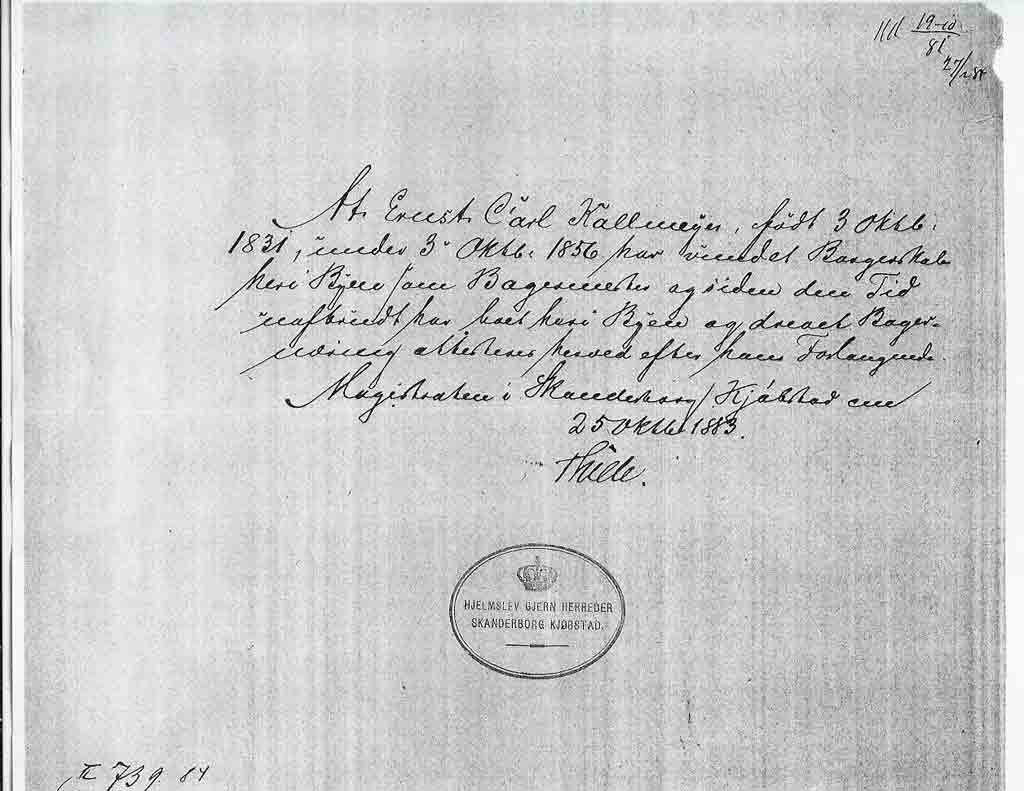 19-10
81
27/2 84
At Ernst Carl Kallmeyer, født 3 Oktb.
1831, under 3 Oktb. 1856 har vundet Borgerskab
heri Byen som Bagermester og siden den Tid
uafbrudt har boet heri Byen og drevet Bager-
næring attesteres herved efter hans Forlangende.
Magistraten i Skanderborg Kjøbstad den
25 Oktb. 1883.
HJELMSLEV GJERN HERREDER
SKANDERBORG KJØBSTAD.
739 84